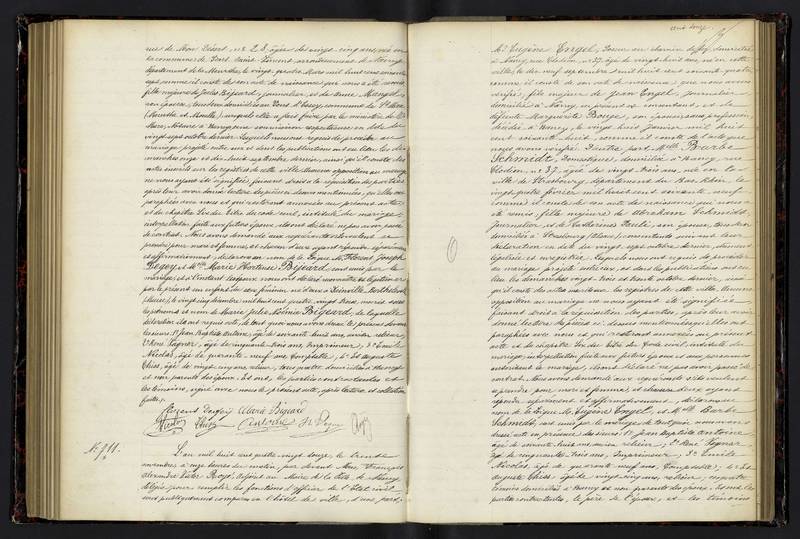 rue de Mon Désert, nº 23, âgée de vingt-cinq ans, née en
la commune de Port Saint Vincent, arrondissement de Nancy
département de la Meurthe, le vingt quatre Mars mil huit cent soixante
sept comme il conste de son acte de naissance que nous a été remis,
fille majeure de Jules Bijeard, journalier, et de Anne Mangel,
son épouse, tous deux domiciliés au Pont d'Essey, commune de St Max
(Meurthe et Moselle), auxquels elle a fait faire par le ministère de Me
Maire, Notaire à Nancy, une convention respectueuse en date du
vingt sept octobre dernier. Lesquels nous ont requis de procéder au
mariage projeté entre eux et dont les publications ont eu lieu les
dimanches onze et dix huit septembre dernier, ainsi qu'il conste des
actes inscrits sur les registres de cette ville. Aucune opposition au mariage
ne nous ayant été signifiée, faisant droit à la réquisition des parties,
après leur avoir donné lecture des pièces ci-dessus mentionnées, qu'elles ont
paraphées avec nous et qui resteront annexées au présent acte
et du chapitre Six du titre du code civil, intitulé du mariage,
interpellation faite aux futurs époux, ils ont déclaré ne pas avoir passé
de contrat. Nous avons demandé aux requérants s'ils veulent se
prendre pour mari et femme, et chacun d'eux ayant répondu séparément
et affirmativement, déclarons au nom de la loi que M. Florent Joseph
Begey, et Melle Marie Hortense Bijeard sont unis par le
mariage, et à l'instant les époux nous ont déclaré reconnaître et légitimer
par le présent un enfant du sexe féminin né d'eux à Reinville
le vingt cinq décembre mil huit cent quatre vingt trois, inscrit sous
les prénoms et nom de Marie Julie Noémie Bijeard, de laquelle
déclaration ils ont requis acte, de tout quoi nous avons dressé les présentes devant
les sieurs 1º Jean Baptiste Antoine, âgé de soixante huit ans, ancien relieur,
2º René Pagnar, âgé de cinquante trois ans, Imprimeur, 3º Emile
Nicolas, âgé de quarante neuf ans, Comptable, 4º Et Auguste
Thiés, âgé de vingt cinq ans, relieur, tous quatre domiciliés à Nancy
et non parents des époux. Et ont, les parties contractantes et
les témoins, signé avec nous le présent acte, après lecture et collation
faites.
Nº 911.
L'an mil huit cent quatre vingt douze, le trente
novembre à onze heures du matin, par devant Nous François
Alexandre Victor Royé, adjoint au Maire de la ville de Nancy
délégué pour remplir les fonctions d'officier de l'État civil
sont publiquement comparus en l'hôtel de ville, d'une part,
cent douze.
M. Eugène Engel, Poseur au chemin de fer, domicilié
à Nancy, rue Clodion, nº 37, âgé de vingt huit ans, né en cette
ville, le dix neuf septembre mil huit cent soixante quatre
comme il conste de son acte de naissance que nous avons
vérifié, fils majeur de Jean Engel, journalier,
domicilié à Nancy, ici présent et consentant, et de
défunte Marguerite Bouye, son épouse, sans profession,
décédée à Nancy, le vingt trois Janvier mil huit
cent soixante huit, comme il conste de l'acte que
nous avons vérifié. D'autre part Melle Barbe
Schmidt, Domestique, domiciliée à Nancy, rue
Clodion, nº 37, âgée de vingt trois ans, née en la
ville de Strasbourg, département du Bas Rhin, le
vingt quatre février mil huit cent soixante neuf
comme il conste de son acte de naissance que nous a
été remis, fille majeure de Abraham Schmidt,
journalier, et de Catherine son épouse, tous deux
domiciliés à Strasbourg (Alsace), consentants suivant leur
déclaration en date du vingt sept octobre dernier, dûment
légalisée et enregistrée. Lesquels nous ont requis de procéder
au mariage projeté entre eux, et dont les publications ont eu
lieu les dimanches vingt trois et trente octobre dernier, ainsi
qu'il conste des actes inscrits sur les registres de cette ville. Aucune
opposition au mariage ne nous ayant été signifiée,
faisant droit à la réquisition des parties, après leur avoir
donné lecture des pièces ci-dessus mentionnées, qu'elles ont
paraphées avec nous et qui resteront annexées au présent
acte et du chapitre Six du titre du Code civil, intitulé du
mariage, interpellation faite aux futurs époux et aux personnes
autorisant le mariage, ils ont déclaré ne pas avoir passé de
contrat. Nous avons demandé aux requérants s'ils veulent
se prendre pour mari et femme, et chacun d'eux ayant
répondu séparément et affirmativement, déclarons au
nom de la loi que M. Eugène Engel, et Melle Barbe
Schmidt, sont unis par le mariage, de tout quoi nous avons
dressé acte en présence des sieurs 1º Jean Baptiste Antoine,
âgé de soixante huit ans, ancien relieur, 2º René Pagnar,
âgé de cinquante trois ans, Imprimeur, 3º Emile
Nicolas, âgé de quarante neuf ans, Comptable, 4º Et
Auguste Thiés, âgé de vingt cinq ans, relieur, tous quatre
témoins domiciliés à Nancy et non parents des époux. Et ont les
parties contractantes, le père de l'époux, et les témoins